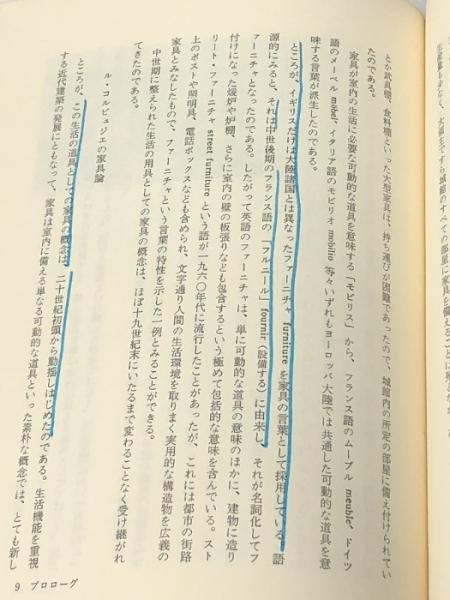 とか武具櫃、食料櫃といった大型家具は、持ち運びが困難であったので、城館内の所定の部屋に備え付けられてい
たのである。
家具が室内の生活に必要な可動的な道具を意味する「モビリス」から、フランス語のムーブル meuble、ドイツ
語のメーベル möbel、イタリア語のモビリオ mobilio 等々いずれもヨーロッパ大陸では共通した可動的な道具を意
味する言葉が派生したのである。
ところが、イギリスだけは大陸諸国とは異なったファーニチャ furniture を家具の言葉として採用している。語
源的にみると、それは中世後期のフランス語の「フルニール」fournir（設備する）に由来し、それが名詞化してフ
ァーニチャとなったのである。したがって英語のファーニチャは、単に可動的な道具の意味のほかに、建物に造り
付けになった煖炉や炉棚、さらに室内の壁の板張りなども包含するという極めて包括的な意味を含んでいる。スト
リート・ファーニチャ street furniture という語が一九六〇年代に流行したことがあったが、これには都市の街路
上のポストや照明具、電話ボックスなども含められ、文字通り人間の生活環境を取りまく実用的な構造物を広義の
家具とみなしたもので、ファーニチャという言葉の特性を示した一例とみることができる。
中世期に整えられた生活の用具としての家具の概念は、ほぼ十九世紀末にいたるまで変わることなく受け継がれ
てきたのである。
ル・コルビュジエの家具論
ところが、この生活の道具としての家具の概念は、二十世紀初頭から動揺しはじめたのである。生活機能を重視
する近代建築の発展にともなって、家具は室内に備える単なる可動的な道具といった素朴な概念では、とても新し
9 プロローグ